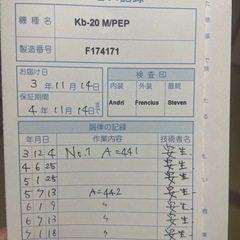 機種名 Kb-20 M/PEP
製造番号 F174171
お届け日 検査印
3年11月14日 内装 外装 最終
保証期間 Andri Frencius Steven
4年11月14日まで
調律の記録
年月日 作業内容 技術者名
3 12 4 No.1 A=441 安生
4 6 25 安生
5 1 25 安生
5 7 13 A=442 安生
6 1 9 〃 安生
6 7 13 〃 安生
7 1 18 〃 安生